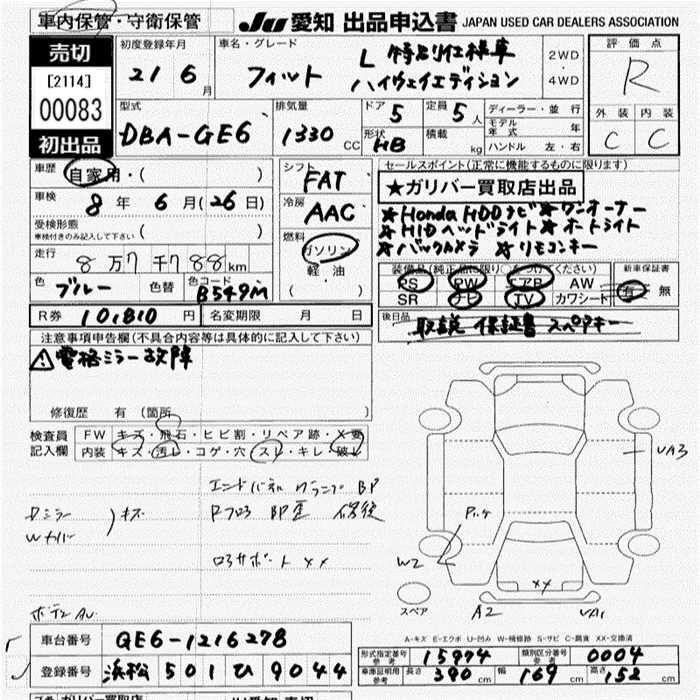 車内保管・守衛保管 JU 愛知 出品申込書 JAPAN USED CAR DEALERS ASSOCIATION
売切
[2114]
00083
初出品
初度登録年月
21 6月
車名・グレード
フィット L 特別仕様車
ハイウェイエディション
2WD
4WD
評価点
R
外装 内装
C C
型式
DBA-GE6
排気量
1330 CC
ドア 5
定員 5人
形状 HB
積載 kg
ディーラー・並行
モデル年式 年
ハンドル 左・右
車歴 自家用・( )
車検 8年 6月(26日)
受検形態
車検付きのみ記入して下さい ( )
走行 8万7千788km
色 ブルー 色替 色コード B549M
シフト FAT
冷房 AAC
燃料 ガソリン
軽油
( )
セールスポイント(正常に機能するものに限ります)
★ガリバー買取店出品
★Honda HDDナビ★ワンオーナー
★HIDヘッドライト★オートライト
★バックカメラ ★リモコンキー
装備品(純正品に限り○をつけください)
PS PW エアB AW
SR ナビ TV カワシート
新車保証書
有 無
R券 10,810円 名変期限 月 日
後日品 取説 保証書 スペアキー
注意事項申告欄(不具合内容等は具体的に記入して下さい)
⚠電格ミラー故障
修復歴 有 (箇所 )
検査員記入欄
FW キズ・飛石・ヒビ割・リペア跡・X要
内装 キズ・汚レ・コゲ・穴 スレ・キレ・破レ
エンドパネル クランプ BP
Rフロア BP歪 修後
ロアサポート XX
キズ
ボディ AU
UA3
W2
XX
A2
UA1
スペア
A-キズ E-エクボ U-凹み W-補修跡 S-サビ C-腐食 XX-交換済
車台番号 GE6-1216278
登録番号 浜松 501 ひ 9044
形式指定番号 参考 15974 類別区分番号 参考 0004
車庫証明用 参考 長さ 390cm 幅 169cm 高さ 152cm